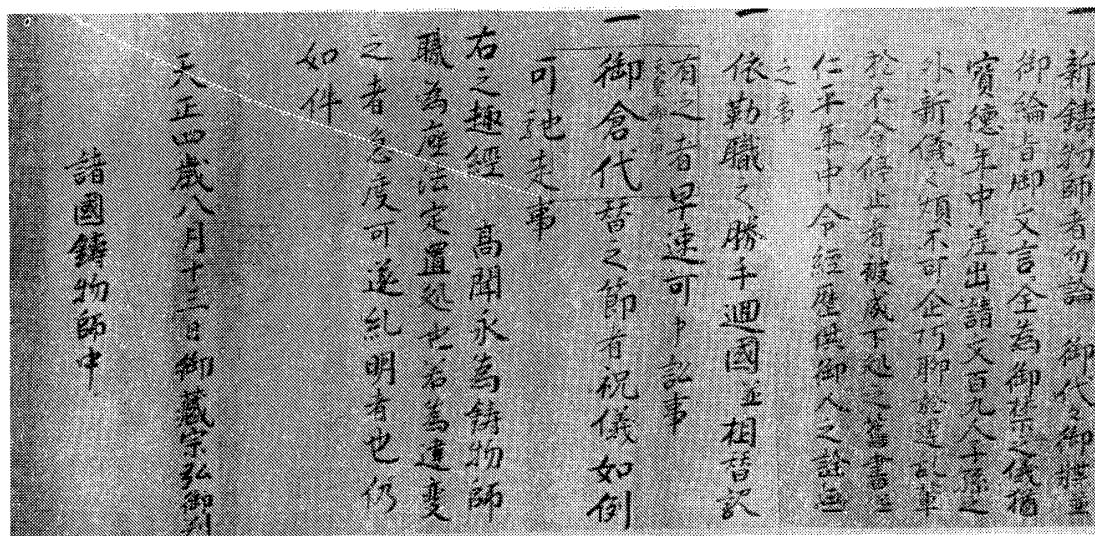 一
新鋳物師者勿論 御代々御牒並
御綸旨御文言全為御禁之儀猶
寶徳年中座出請文百九人子孫之
外新儀之類不可企巧聊於違乱輩
於不令停止者被成下処之旧書並
仁平年中 令経歴供御人之証
之事
一
依勤職之勝手廻國並相替訳
有之者早速可申訟事
一
御倉代替之節者祝儀如例
可馳走事
右之趣経 高聞永為鋳物師
職為座法定置処也若為違変
之者急度可遂糺明者也仍
如件
天正四歳八月十三日御蔵宗弘御判
諸國鋳物師中